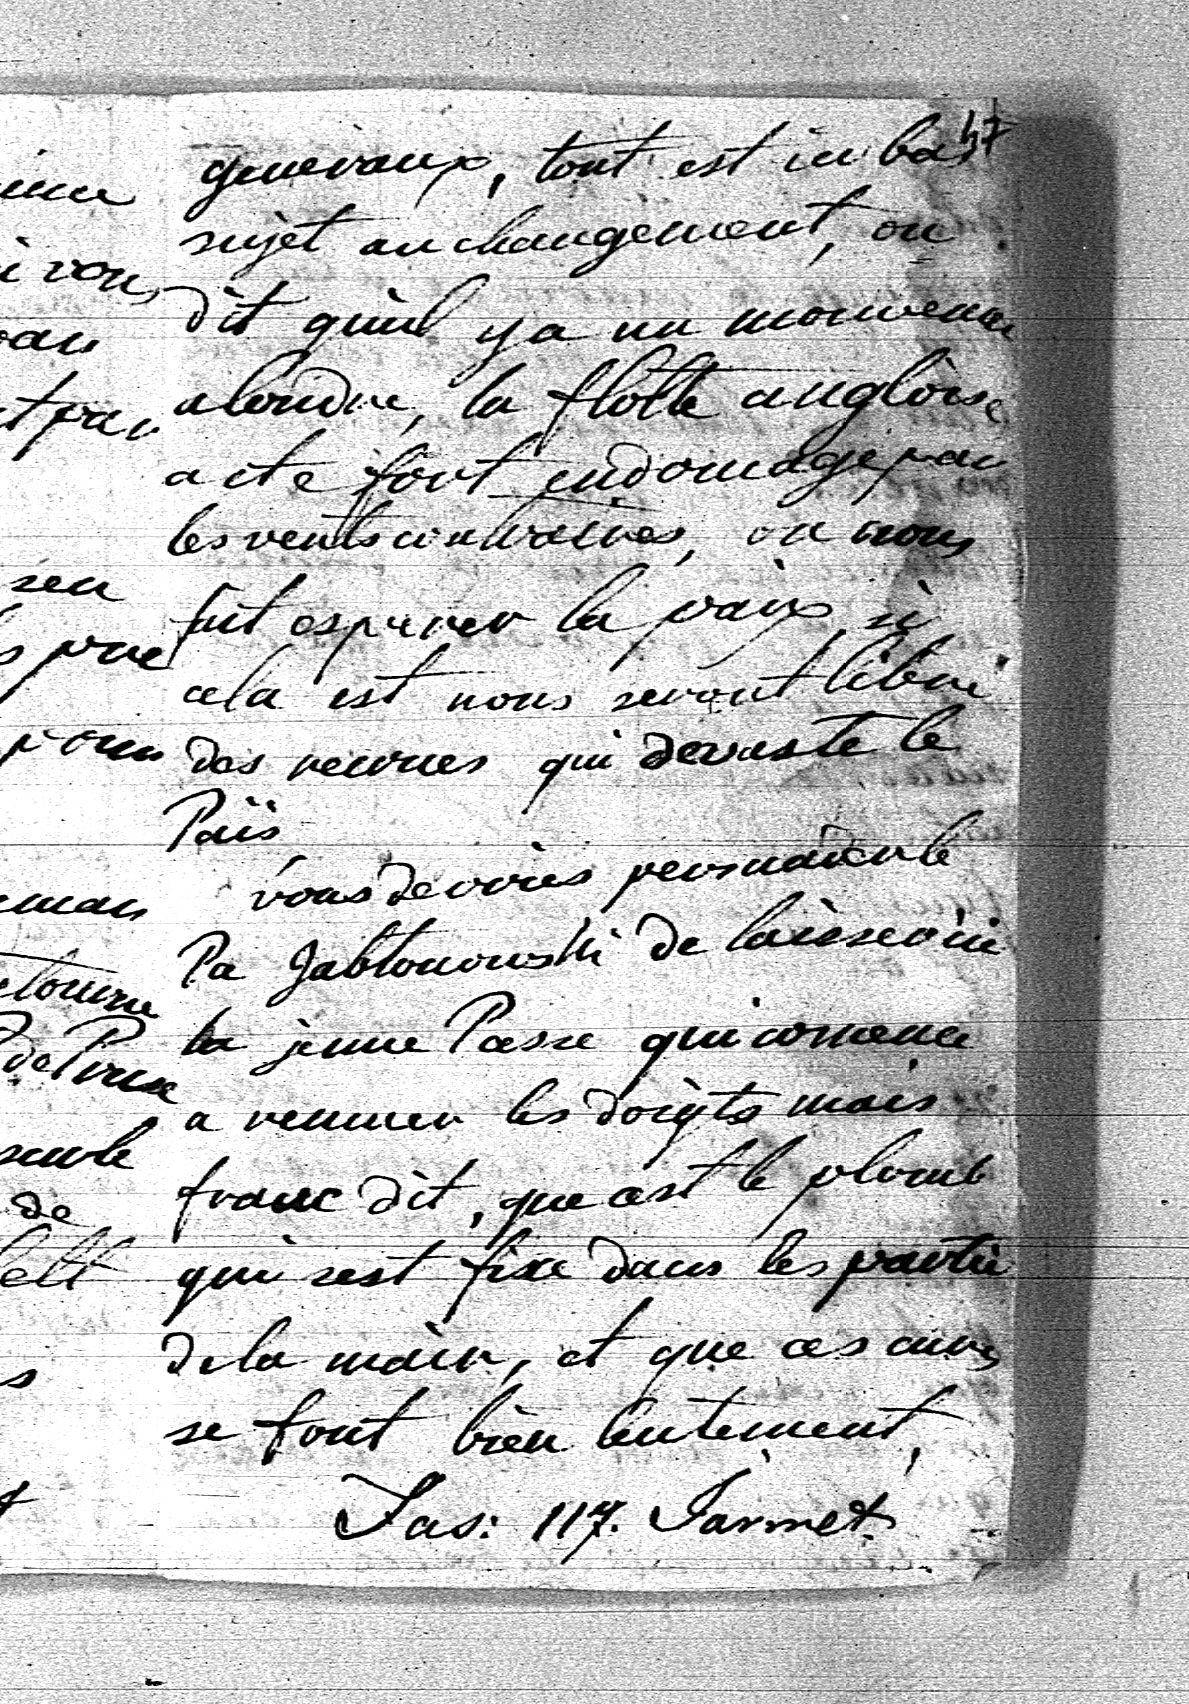 47
generaux, tout est ici bas
sujet au changement, on
dit qu'il y a un mouvemen
a londre, la flotte angloise
a ete fort endomagé par
les vents contraires, on nous
fait esperer la paix, si
cela est nous seront libre
des recrues qui devaste le
Païs
vous devriès persuader le
Pa Jabłonowski de laisser ici
la jeune Passe qui comence
a remuer les doigts mais
franc dit, que cest le plomb
qui sest fixe dans les partie
de la main, et que ces cures
se font bien lentement,
Fas: 117. Jarmet.